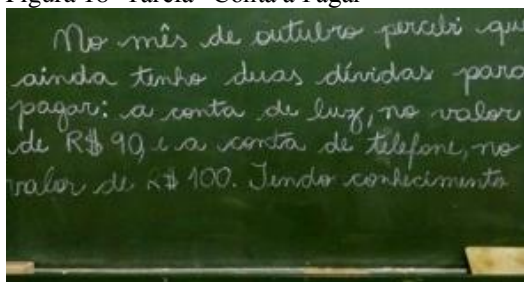 Figura 18 Tarefa "Conta a Pagar"
No mês de outubro percebi que
ainda tenho duas dívidas para
pagar: a conta de luz, no valor
de R$ 90 e a conta de telefone, no
valor de R$ 100. Tendo conhecimento